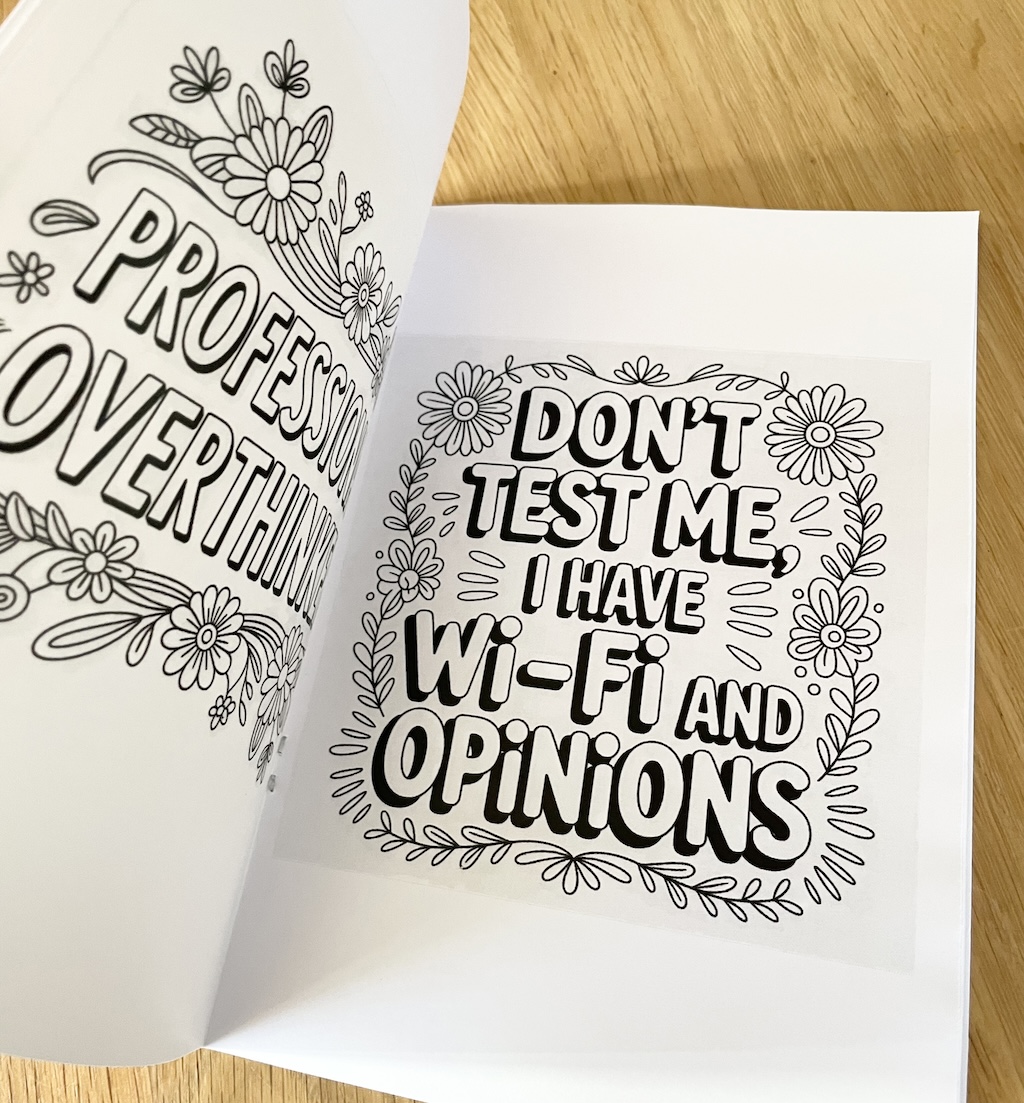 PROFESSIONAL
OVERTHINKER
DON'T
TEST ME,
I HAVE
Wi-Fi AND
OPiNiONS